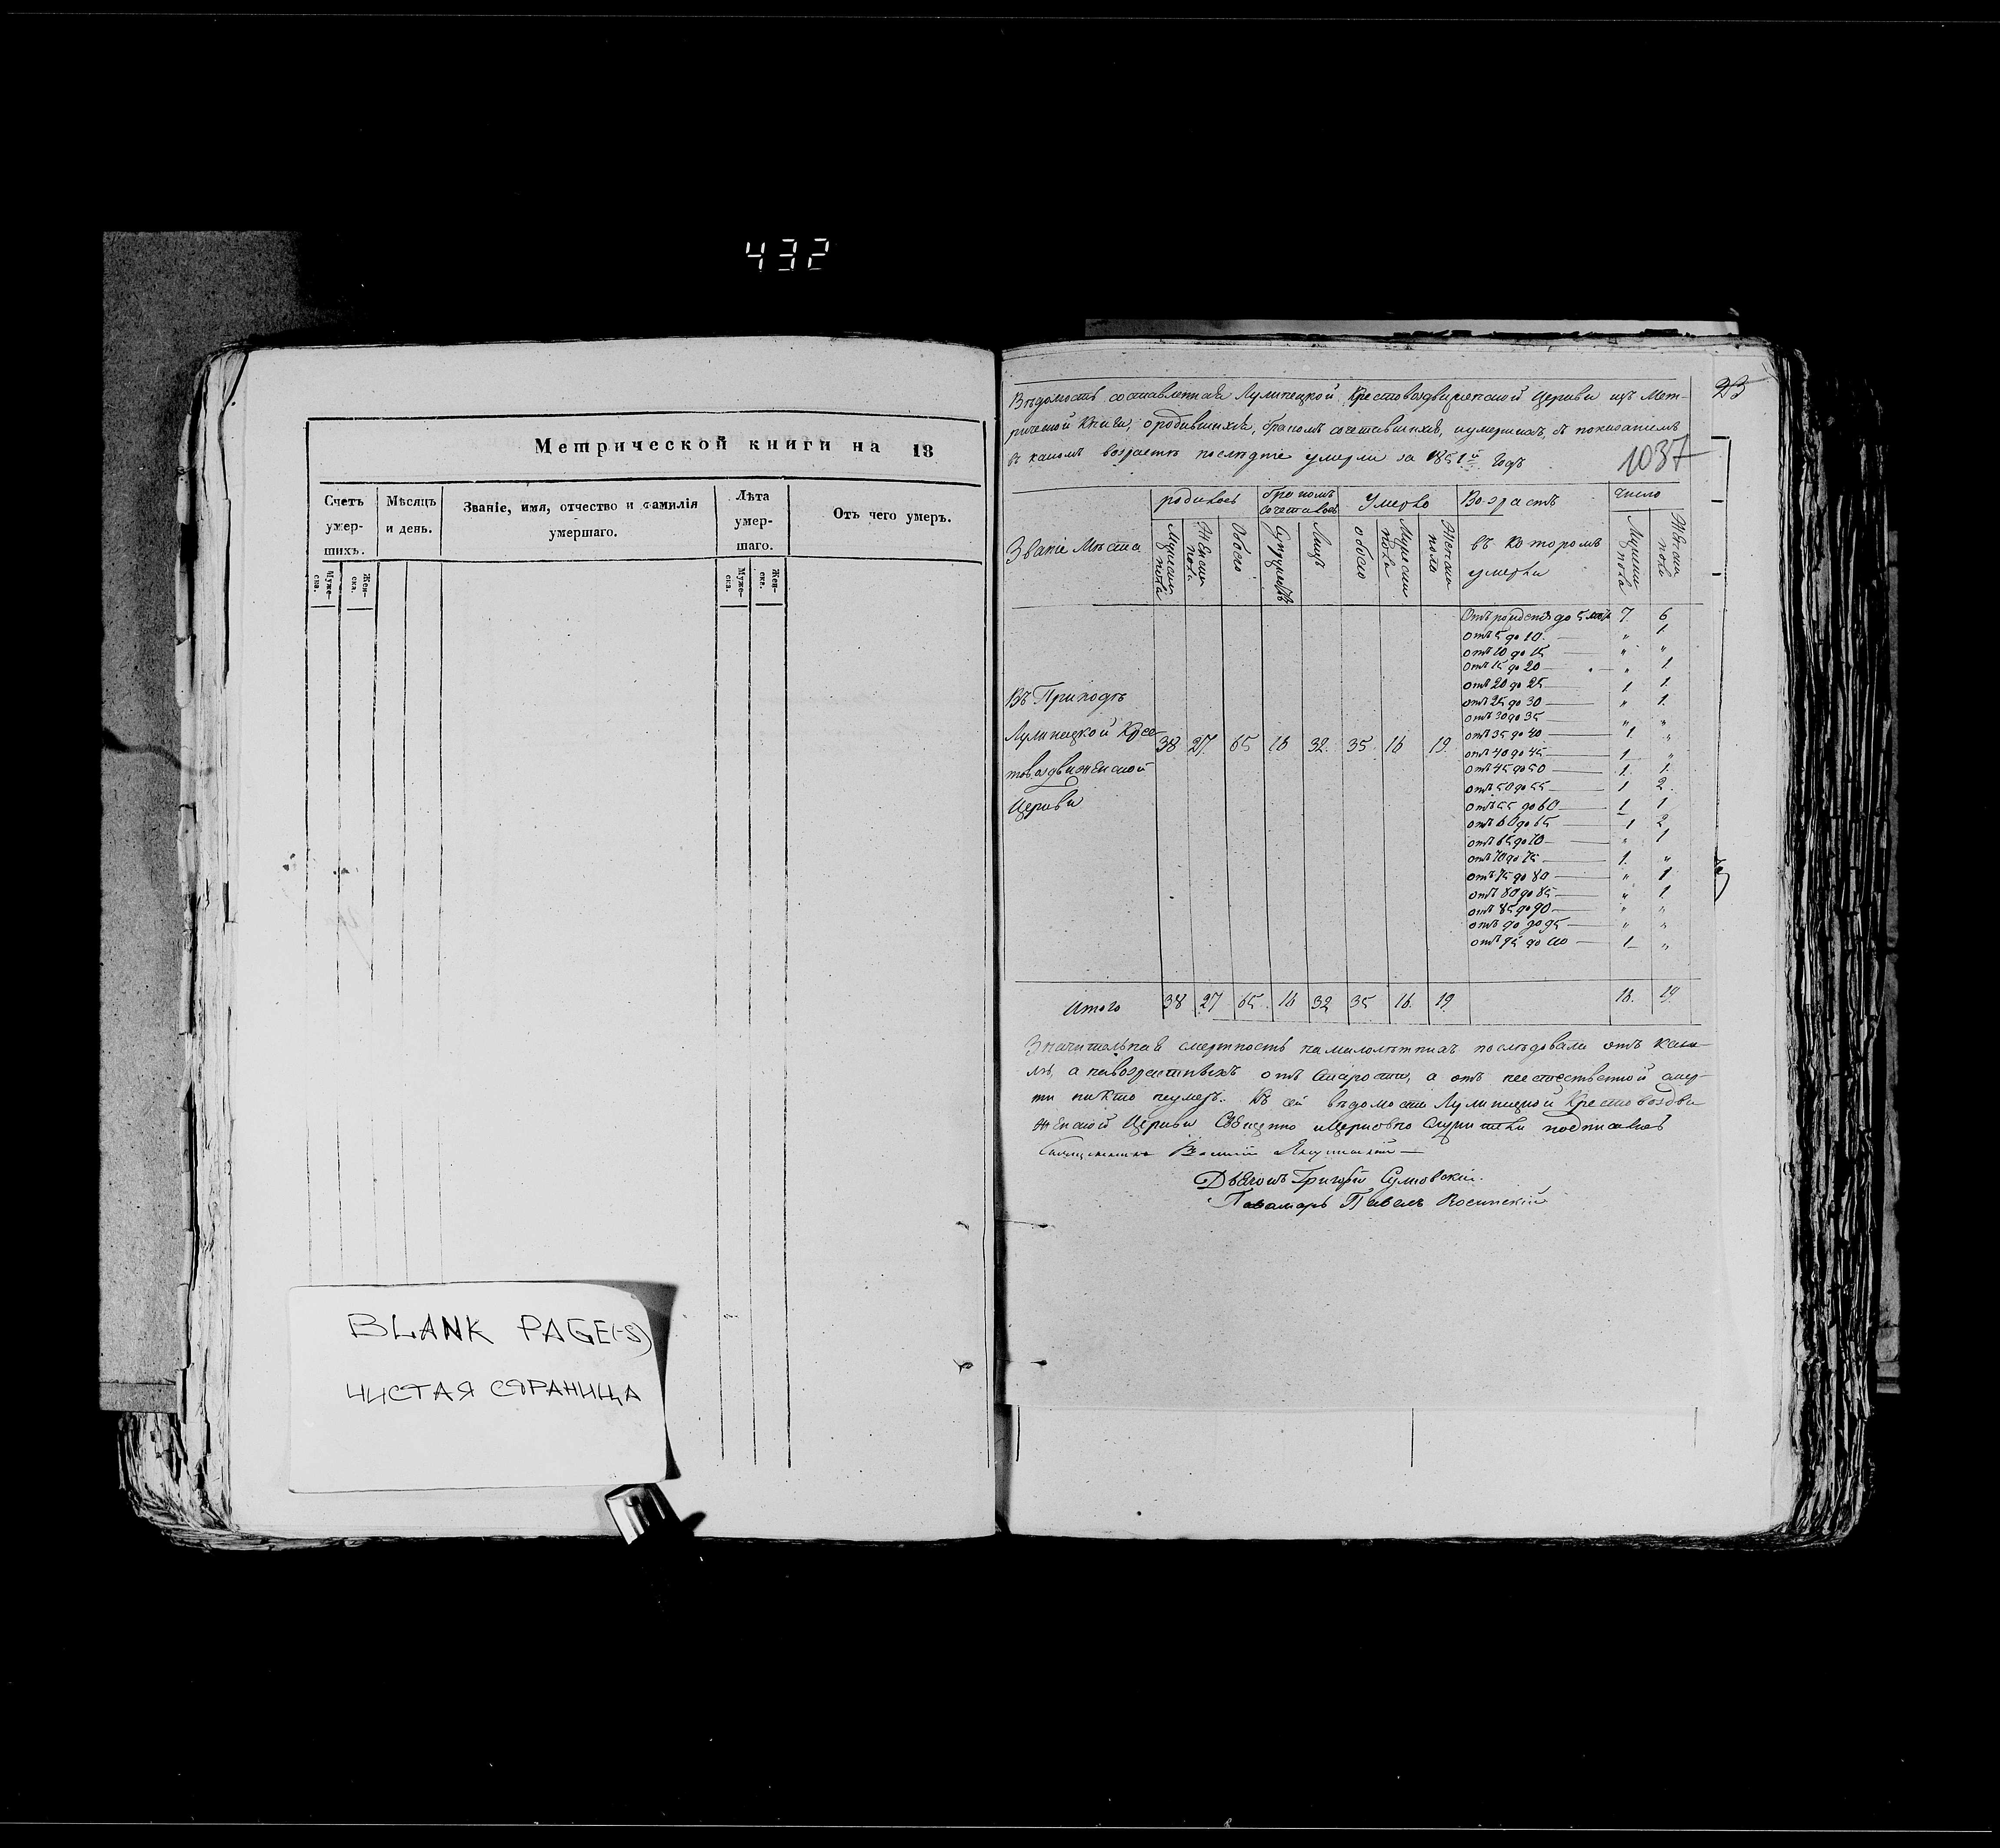 432
Метрической книги на 18
Счетъ умер-шихъ.
Мѣсяцъ и день.
Званіе, имя, отчество и фамилія умершаго.
Лѣта умер-шаго.
Отъ чего умеръ.
Муже-ска.
Жен-ска.
Муже-ска.
Жен-ска.
BLANK PAGE(-S)
ЧИСТАЯ СТРАНИЦА
23
Вѣдомость составленная Лулинецкой Крестовоздвиженской Церкви изъ Мет-
рической Книги, о родившихся, бракомъ сочетавшихся, и умершихъ, съ показаніемъ
въ какомъ возрастѣ послѣдніе умерли за 1851й годъ
1037
Званіе Мѣста
родилось
бракомъ сочеталось
Умерло
Возрастъ въ которомъ умерли
число
Мужеска пола
Женска пола
Обоего
Супружествъ
Лицъ
обоего
Мужеска пола
Женска пола
Мужеска пола
Женска пола
Отъ рожденія до 5 лѣтъ 7. 6
отъ 5 до 10. — " 1.
отъ 10 до 15 — " "
отъ 15 до 20 — " 1
отъ 20 до 25 — 1 1.
отъ 25 до 30 — " 1.
отъ 30 до 35 — " "
отъ 35 до 40 — 1. "
отъ 40 до 45 — 1 "
отъ 45 до 50 — 1. 1.
отъ 50 до 55 — 1 2.
отъ 55 до 60 — 1 1
отъ 60 до 65 — 1 2
отъ 65 до 70 — " 1
отъ 70 до 75 — 1. "
отъ 75 до 80 — " 1
отъ 80 до 85 — " 1.
отъ 85 до 90 — " "
отъ 90 до 95 — " "
отъ 95 до 100 — 1 "
Въ Приходѣ
Лулинецкой Крес-
товоздвиженской
Церкви
38 27. 65 16 32. 35. 16 19.
Итого 38 27 65. 16 32 35 16. 19. 16. 19.
Значительная смертность на малолѣтнихъ послѣдовала отъ каш-
ля, а на возрастныхъ отъ старости, а отъ неестественной смер-
ти никто не умеръ. Къ сей вѣдомости Лулинецкой Крестовоздви
женской Церкви Священно и Церковно служители подписались
Священникъ
Дьяконъ Григорій Сулковскій.
Паламарь Павелъ Росинскій